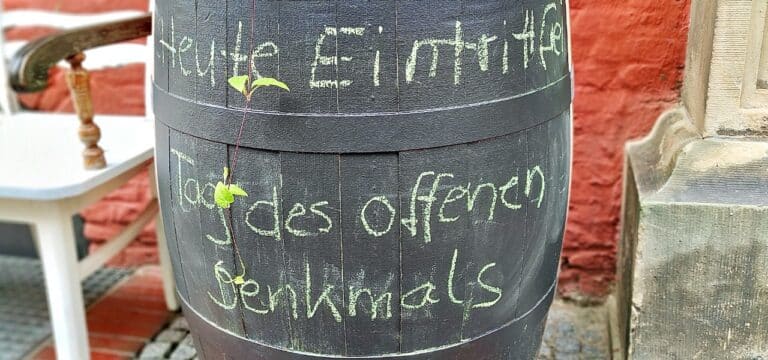 Heute Eintritt frei
Tag des offenen
Denkmals